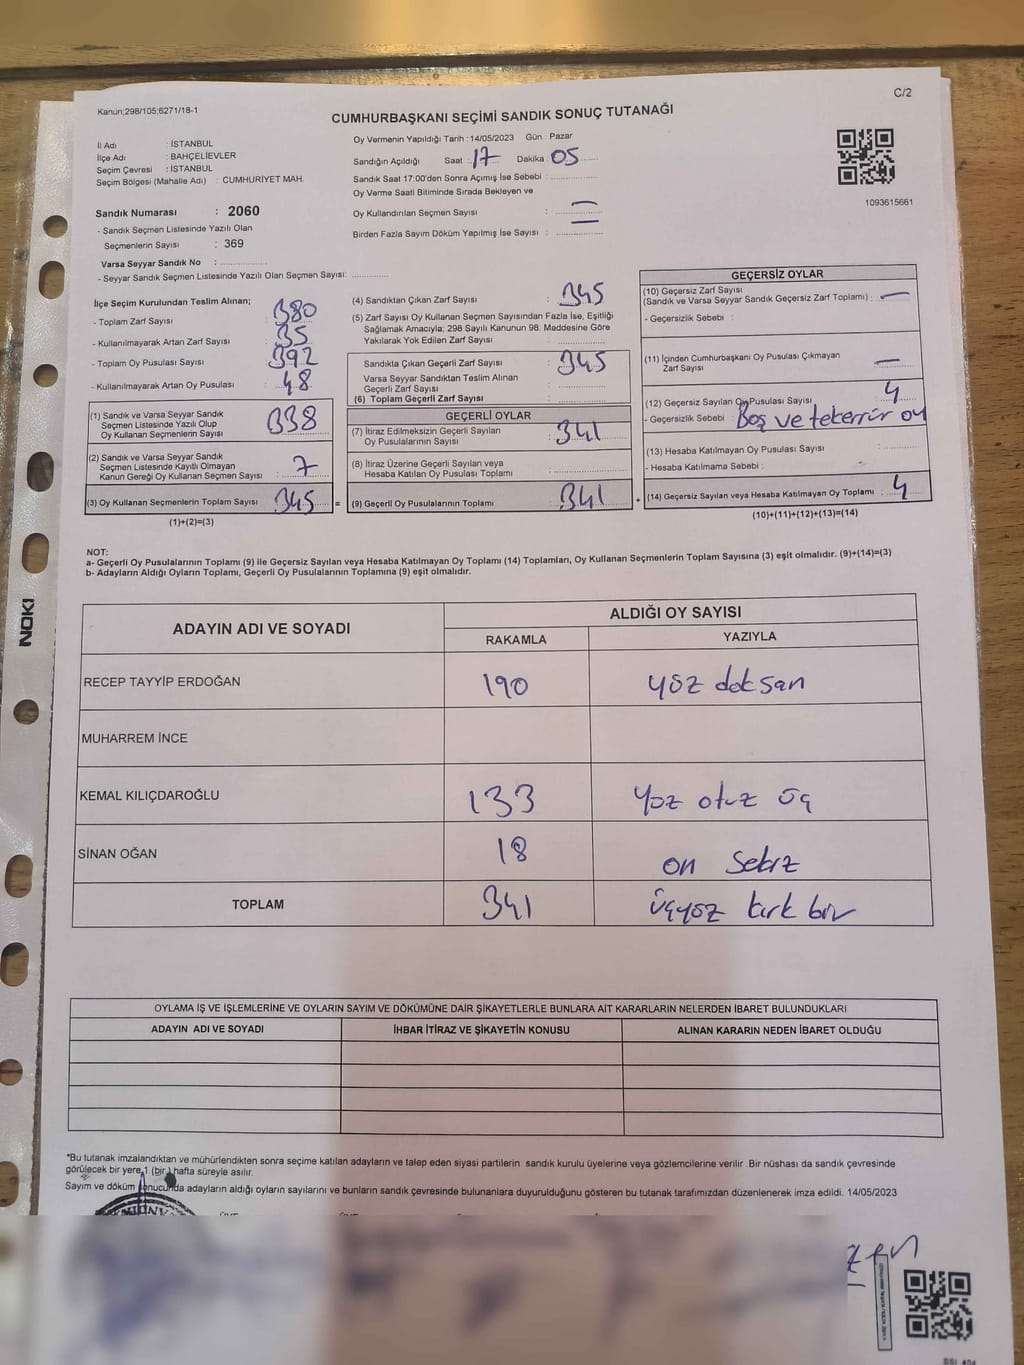 Kanun;298/105;6271/18-1
C/2
CUMHURBAŞKANI SEÇİMİ SANDIK SONUÇ TUTANAĞI
İl Adı : İSTANBUL
İlçe Adı : BAHÇELİEVLER
Seçim Çevresi : İSTANBUL
Seçim Bölgesi (Mahalle Adı) : CUMHURİYET MAH.
Oy Vermenin Yapıldığı Tarih : 14/05/2023 Gün : Pazar
Sandığın Açıldığı Saat 17 Dakika 05
Sandık Saat 17:00'den Sonra Açımış İse Sebebi :
Oy Verme Saati Bitiminde Sırada Bekleyen ve
Oy Kullandırılan Seçmen Sayısı : —
Birden Fazla Sayım Döküm Yapılmış İse Sayısı : —
1093615661
Sandık Numarası : 2060
- Sandık Seçmen Listesinde Yazılı Olan
Seçmenlerin Sayısı : 369
Varsa Seyyar Sandık No :
- Seyyar Sandık Seçmen Listesinde Yazılı Olan Seçmen Sayısı:
İlçe Seçim Kurulundan Teslim Alınan;
- Toplam Zarf Sayısı : 380
- Kullanılmayarak Artan Zarf Sayısı : 35
- Toplam Oy Pusulası Sayısı : 392
- Kullanılmayarak Artan Oy Pusulası : 48
(1) Sandık ve Varsa Seyyar Sandık
Seçmen Listesinde Yazılı Olup
Oy Kullanan Seçmenlerin Sayısı : 338
(2) Sandık ve Varsa Seyyar Sandık
Seçmen Listesinde Kayıtlı Olmayan
Kanun Gereği Oy Kullanan Seçmen Sayısı : 7
(3) Oy Kullanan Seçmenlerin Toplam Sayısı : 345 =
(1)+(2)=(3)
(4) Sandıktan Çıkan Zarf Sayısı : 345
(5) Zarf Sayısı Oy Kullanan Seçmen Sayısından Fazla İse, Eşitliği
Sağlamak Amacıyla; 298 Sayılı Kanunun 98. Maddesine Göre
Yakılarak Yok Edilen Zarf Sayısı :
Sandıkta Çıkan Geçerli Zarf Sayısı : 345
Varsa Seyyar Sandıktan Teslim Alınan
Geçerli Zarf Sayısı :
(6) Toplam Geçerli Zarf Sayısı :
GEÇERLİ OYLAR
(7) İtiraz Edilmeksizin Geçerli Sayılan
Oy Pusulalarının Sayısı : 341
(8) İtiraz Üzerine Geçerli Sayılan veya
Hesaba Katılan Oy Pusulası Toplamı :
(9) Geçerli Oy Pusulalarının Toplamı : 341 +
GEÇERSİZ OYLAR
(10) Geçersiz Zarf Sayısı
(Sandık ve Varsa Seyyar Sandık Geçersiz Zarf Toplamı) : —
- Geçersizlik Sebebi :
(11) İçinden Cumhurbaşkanı Oy Pusulası Çıkmayan
Zarf Sayısı : —
(12) Geçersiz Sayılan Oy Pusulası Sayısı : 4
- Geçersizlik Sebebi : Boş ve tekerrür oy
(13) Hesaba Katılmayan Oy Pusulası Sayısı :
- Hesaba Katılmama Sebebi :
(14) Geçersiz Sayılan veya Hesaba Katılmayan Oy Toplamı : 4
(10)+(11)+(12)+(13)=(14)
NOT:
a- Geçerli Oy Pusulalarının Toplamı (9) ile Geçersiz Sayılan veya Hesaba Katılmayan Oy Toplamı (14) Toplamları, Oy Kullanan Seçmenlerin Toplam Sayısına (3) eşit olmalıdır. (9)+(14)=(3)
b- Adayların Aldığı Oyların Toplamı, Geçerli Oy Pusulalarının Toplamına (9) eşit olmalıdır.
NOKI
ADAYIN ADI VE SOYADI
ALDIĞI OY SAYISI
RAKAMLA YAZIYLA
RECEP TAYYİP ERDOĞAN 190 yüz doksan
MUHARREM İNCE
KEMAL KILIÇDAROĞLU 133 Yüz otuz üç
SİNAN OĞAN 18 on sekiz
TOPLAM 341 üçyüz kırk bir
OYLAMA İŞ VE İŞLEMLERİNE VE OYLARIN SAYIM VE DÖKÜMÜNE DAİR ŞİKAYETLERLE BUNLARA AİT KARARLARIN NELERDEN İBARET BULUNDUKLARI
ADAYIN ADI VE SOYADI İHBAR İTİRAZ VE ŞİKAYETİN KONUSU ALINAN KARARIN NEDEN İBARET OLDUĞU
*Bu tutanak imzalandıktan ve mühürlendikten sonra seçime katılan adayların ve talep eden siyasi partilerin sandık kurulu üyelerine veya gözlemcilerine verilir .Bir nüshası da sandık çevresinde
görülecek bir yere 1 (bir ) hafta süreyle asılır.
Sayım ve döküm sonucunda adayların aldığı oyların sayılarını ve bunların sandık çevresinde bulunanlara duyurulduğunu gösteren bu tutanak tarafımızdan düzenlenerek imza edildi. 14/05/2023